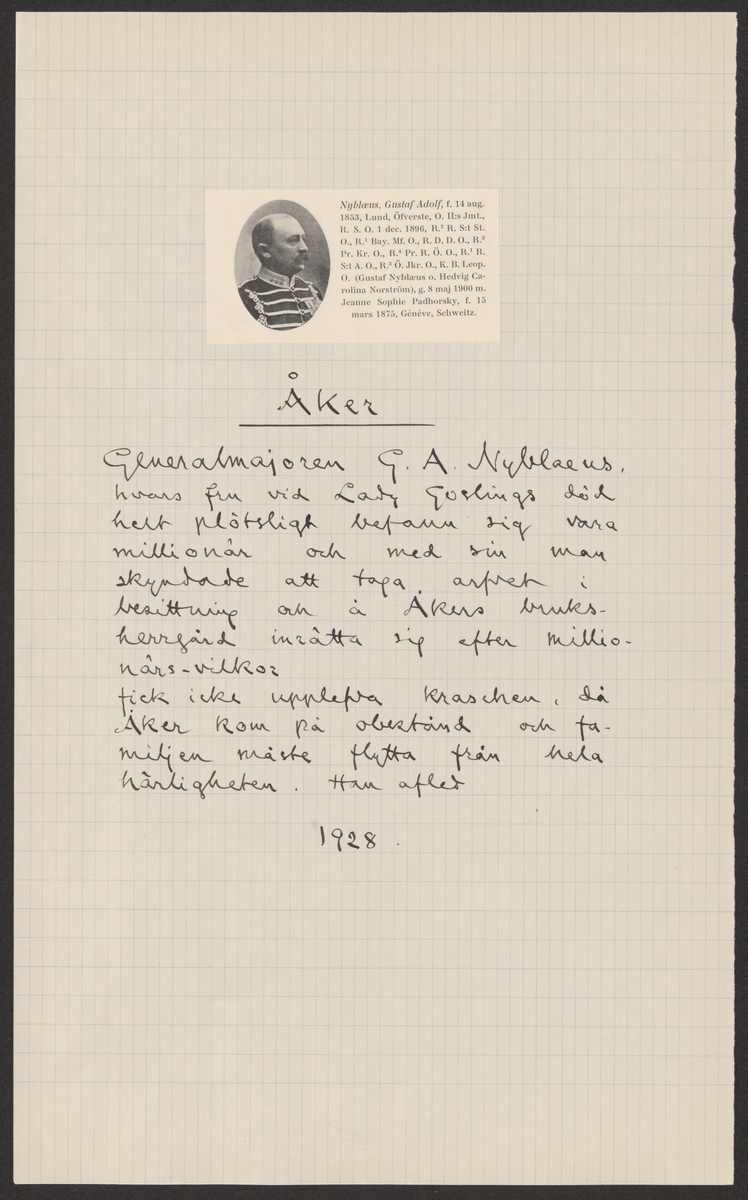 Nyblæus, Gustaf Adolf, f. 14 aug.
1853, Lund, Öfverste, O. II:s Jmt.,
R. S. O. 1 dec. 1896, R.² R. S:t St.
O., R.¹ Bay. Mf. O., R. D. D. O., R.³
Pr. Kr. O., R.⁴ Pr. R. Ö. O., R.¹ R.
S:t A. O., R.³ Ö. Jkr. O., K. B. Leop.
O. (Gustaf Nyblæus o. Hedvig Ca-
rolina Norström), g. 8 maj 1900 m.
Jeanne Sophie Padhorsky, f. 15
mars 1875, Génève, Schweitz.
Åker
Generalmajoren G. A. Nyblaeus,
hvars fru vid Lady Goslings död
helt plötsligt befann sig vara
millionär och med sin man
skyndade att taga arfvet i
besittning och å Åkers bruks-
herrgård inrätta sig efter millio-
närs-vilkor
fick icke upplefva kraschen, då
Åker kom på obestånd och fa-
miljen måste flytta från hela
härligheten. Han afled
1928.